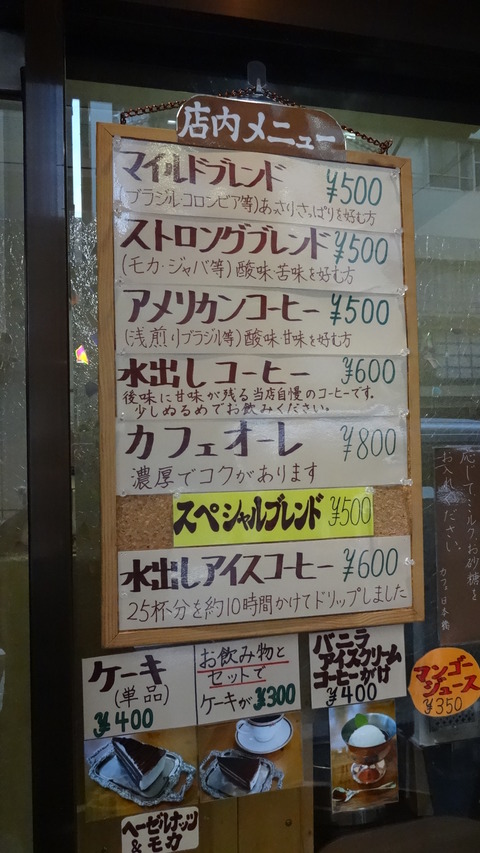 店内メニュー
マイルドブレンド ¥500
(ブラジル・コロンビア等)あっさりさっぱりを好む方
ストロングブレンド ¥500
(モカ・ジャバ等)酸味・苦味を好む方
アメリカンコーヒー ¥500
(浅煎りブラジル等)酸味・甘味を好む方
水出しコーヒー ¥600
後味に甘味が残る当店自慢のコーヒーです。
少しぬるめでお飲みください。
カフェオーレ ¥800
濃厚でコクがあります
スペシャルブレンド ¥500
水出しアイスコーヒー ¥600
25杯分を約10時間かけてドリップしました
ケーキ
(単品)
¥400
お飲み物と
セットで
ケーキが¥300
バニラ
アイスクリーム
コーヒーがけ
¥400
マンゴー
ジュース
¥350
ヘーゼルナッツ
&モカ
応じてミルク、お砂糖を
お入れください。
カフェ日本橋